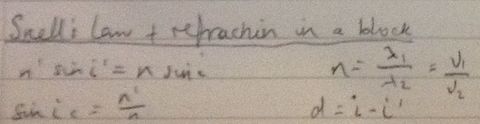 Snell's Law + refraction in a block
n' sin i' = n sin i n = λ₁/λ₂ = v₁/v₂
sin i c = n'/n d = i - i'